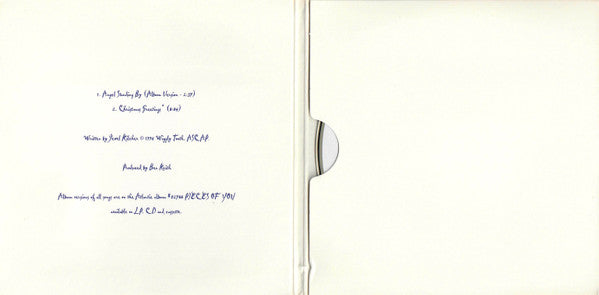 1. Angel Standing By (Album Version - 2:37)
2. Christmas Greetings*
Written by Jewel Kilcher © 1994 Wiggly Tooth, ASCAP.
Produced by Ben Keith
Album versions of all songs are on the Atlantic album #82700 PIECES OF YOU
available on LP, CD and cassette.